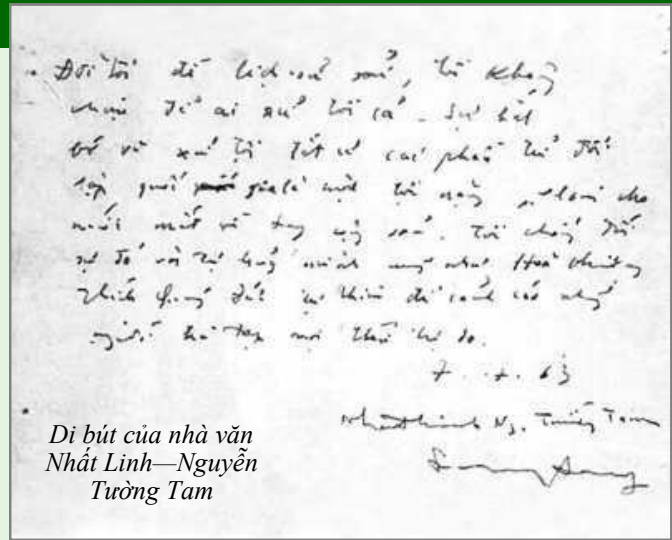 Đời tôi để lịch-sử xử, tôi không
chịu để ai xử tôi cả. Sự bắt
bớ và xử tội tất cả các phần tử đối
lập quốc gia là một tội nặng, sẽ làm cho
nước mất về tay cộng sản. Tôi chống đối
sự đó và tự hủy mình cũng như Hoà thượng
Thích Quảng Đức tự thiêu để cảnh cáo những
người chà đạp mọi thứ tự do.
7.7.63
Nhất Linh Ng. Tường Tam
Di bút của nhà văn
Nhất Linh—Nguyễn
Tường Tam